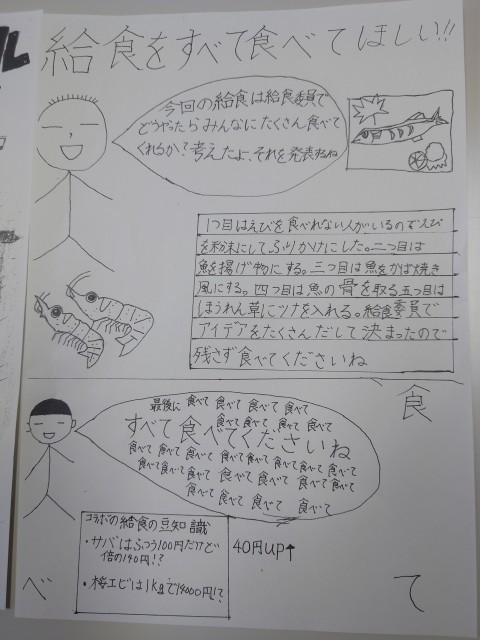 給食をすべて食べてほしい!!
今回の給食は給食委員で
どうやったらみんなにたくさん食べて
くれるか？考えたよ、それを発表するね
1つ目はえびを食べれない人がいるのでえび
を粉末にしてふりかけにした。二つ目は
魚を揚げ物にする。三つ目は魚をかば焼き
風にする。四つ目は魚の骨を取る五つ目は
ほうれん草にツナを入れる。給食委員で
アイデアをたくさんだして決まったので
残さず食べてくださいね
最後に 食べて 食べて 食べて 食べて
食べて 食べて 食べて 食べて
すべて食べてくださいね
食べて 食べて 食べて 食べて 食べて 食べて 食べて 食べて
食べて 食べて 食べて 食べて 食べて 食べて 食べて 食べて
食べて 食べて 食べて 食べて
食
べ
て
コラボの給食の豆知識
・サバはふつう100円だけど
倍の140円!?
40円UP↑
・桜エビは1kgで14000円!?